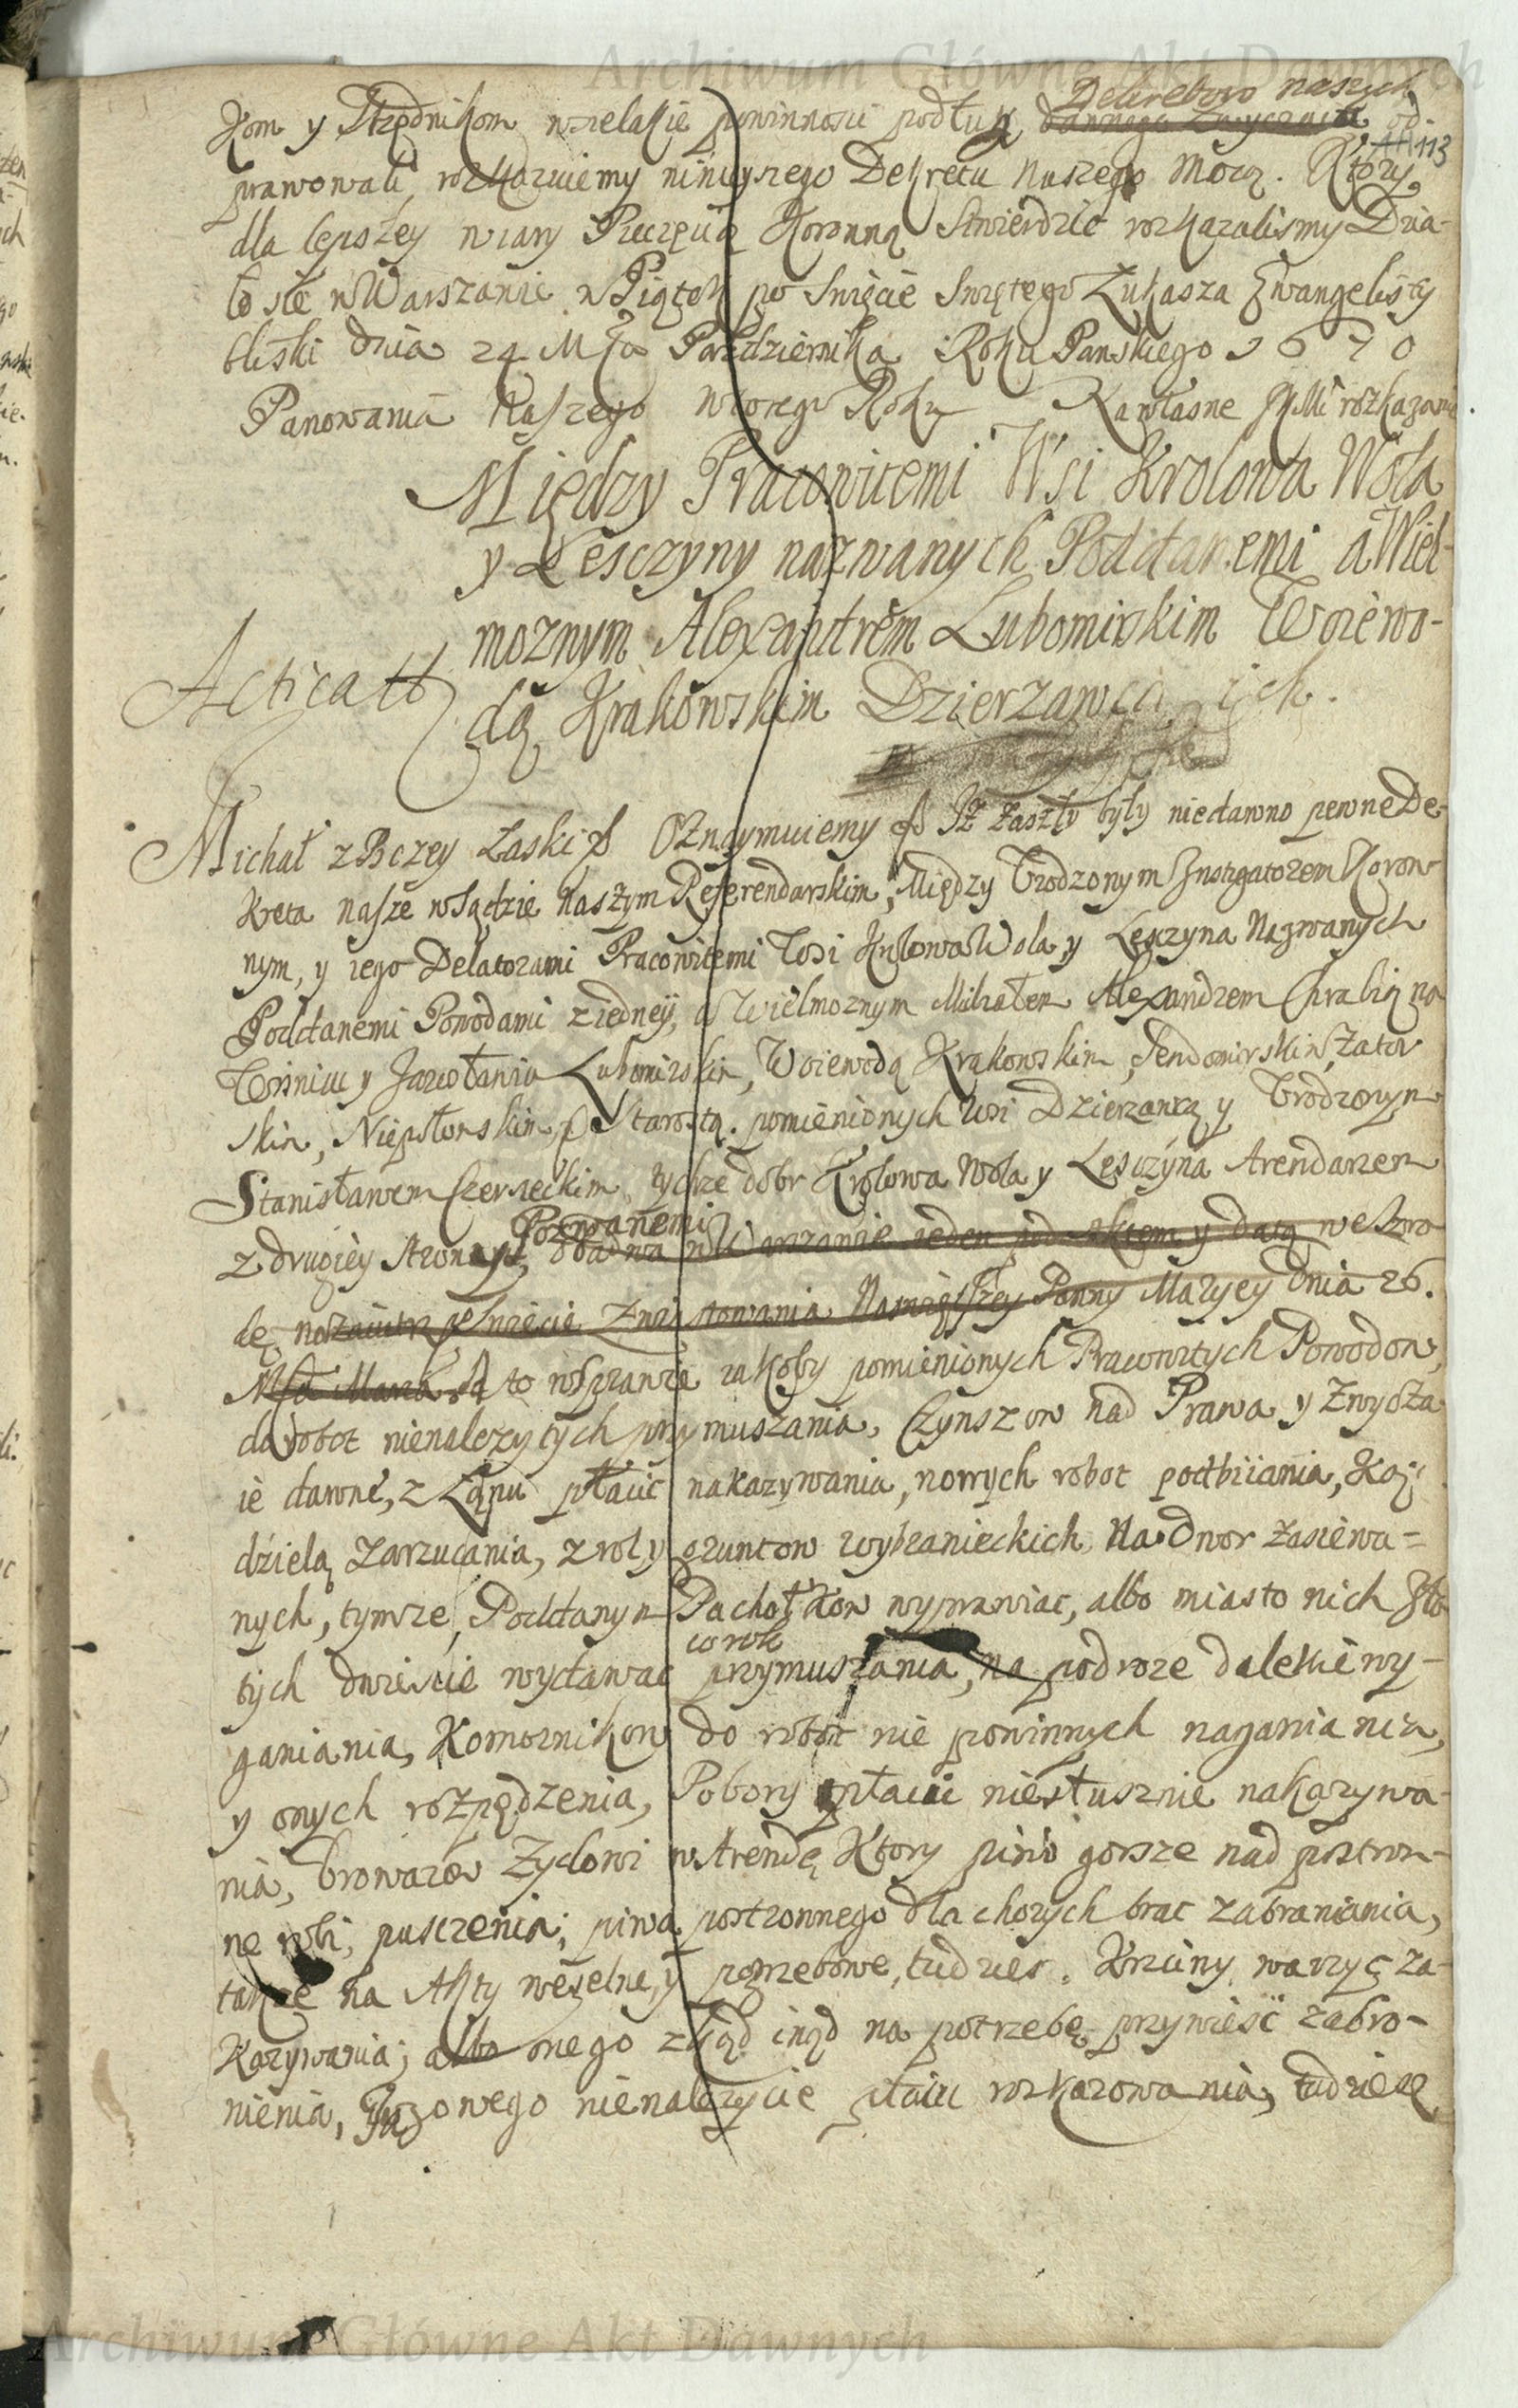 Archiwum Główne Akt Dawnych
Dekretow naszych
Kom y Urzędnikom wszelakie powinnosci podług dawnego zwyczaiu od-
113
prawowali, rozkazuiemy ninieyszego Dekretu Naszego Mocą. Ktory
dla lepszey wiary Pieczęcią Koronną Stwierdzic rozkazalismy Dzia-
ło się w Warszawie w Piątek po Swięcie Swiętego Łukasza Ewangelisty
bliski dnia 24 Mca Pazdziernika Roku Panskiego 1670
Panowania Naszego Wtorego Roku Na własne JKMci rozkazanie.
Między Pracowitemi Wsi Krolowa Wola
y Lesczyny nazwanych Poddanemi a Wiel-
moznym Alexandrem Lubomirskim Woiewo-
Acticatt
dą Krakowskim Dzierzawcą ich.
Michał z Bozey Łaski Oznaymuiemy Iż zaszły były niedawno pewne De-
kreta nasze w Sądzie naszym Referendarskim, Między Urodzonym Instygatorem Koron-
nym, y iego Delatorami Pracowitemi Wsi Krolowa Wola y Lesczyna Nazwanych
Poddanemi Powodami z iedney, a Wielmoznym Michałem Alexandrem Hrabią na
Wisniczu y Jarosławiu Lubomirskim, Woiewodą Krakowskim, Sendomirskim, Zator-
skim, Niepołomskim Starostą. pomienionych Wsi Dzierzawcą y Urodzonym
Stanisławem Czerneckim, tychze dobr Krolowa Wola y Lesczyna Arendarzem
Pozwanemi
z drugiey Strony, obadwa w Warszawie ieden pod aktem y datą we Szro-
dę nazaiutrz po Swięcie Zwiastowania Naswiętszey Panny Maryey dnia 26.
Mca Marca. A to w Sprawie iakoby pomienionych Pracowitych Powodow,
do robot nienalezytych przymuszania, Czynszow nad Prawa y Zwycza-
ie dawne, z Łąpu płacic nakazywania, nowych robot podbiiania, Ką-
dzielą zarzucania, z roli y gruntow wybranieckich Na Dwor zasiewa-
nych, tymze Poddanym Pachołkow wyprawiac, albo miasto nich Zło-
co rok
tych dwiescie wydawac przymuszania, na podroze dalekie wy-
ganiania, Komornikow do robot nie powinnych naganiania,
y onych rozpędzenia, Pobory płacic niesłusznie nakazywa-
nia, browarow Zydowi w Arendę Ktory piwo gorsze nad postron-
ne robi, pusczenia; piwa postronnego dla chorych brac zabraniania,
takze na Akty weselne, y pogrzebowe, tudzies. Krzciny warzyc za-
kazywania; albo onego zkąd inąd na potrzebę przywiesc zabro-
nienia, nienalezycie płacic rozkazowania, tudziesz
Archiwum Główne Akt Dawnych